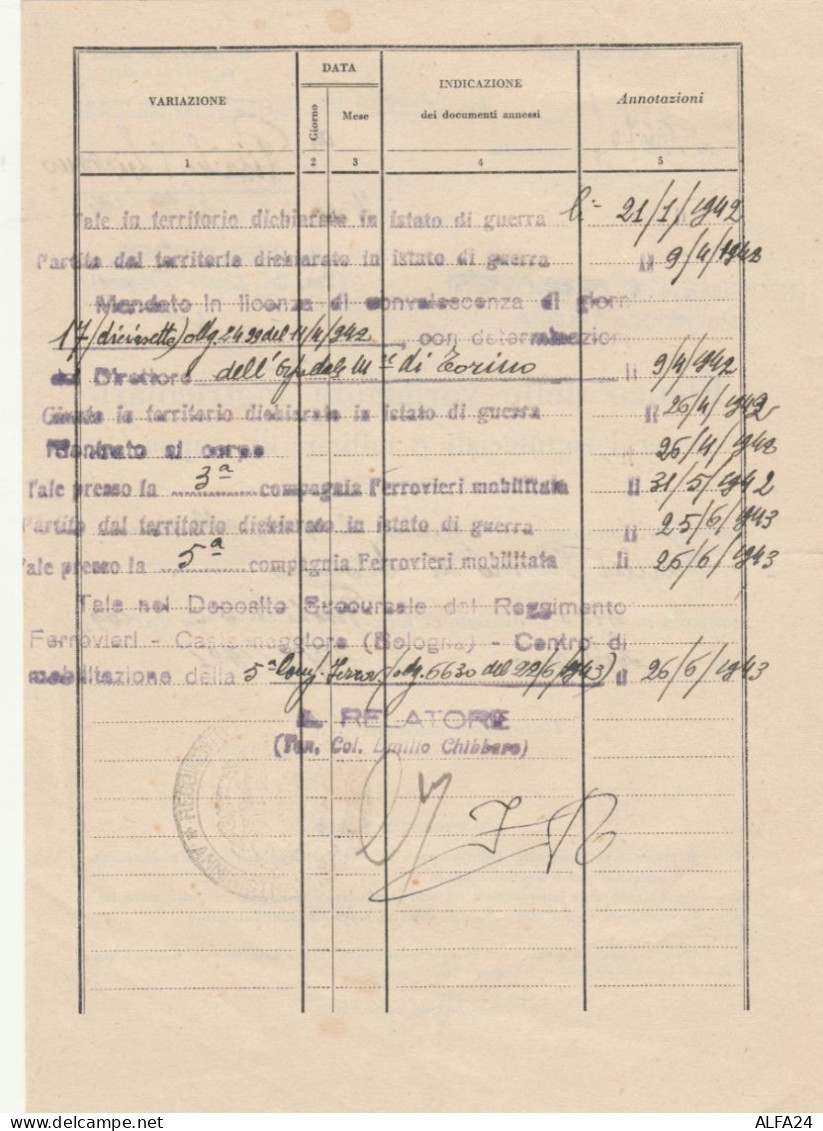 VARIAZIONE
DATA
Giorno
Mese
INDICAZIONE
dei documenti annessi
Annotazioni
1 2 3 4 5
Tale in territorio dichiarato in istato di guerra li 21/1/1942
Partito dal territorio dichiarato in istato di guerra li 9/4/1942
Mandato in licenza di convalescenza di giorni
17 (diciasette) obg. 2429 del 11/4/942, con determinazione
del Direttore dell' Ospedale M.re di Torino li 9/4/1942
Giunto in territorio dichiarato in istato di guerra li 26/4/1942
Rientrato al corpo li 26/4/1942
Tale presso la 3ª compagnia Ferrovieri mobilitata li 31/5/1942
Partito dal territorio dichiarato in istato di guerra li 25/6/1943
Tale presso la 5ª compagnia Ferrovieri mobilitata li 26/6/1943
Tale nel Deposito Succursale del Reggimento
Ferrovieri - Castelmaggiore (Bologna) - Centro di
mobilitazione della 5ª Comp. Ferrov. (obg. 6630 del 22/6/1943) li 26/6/1943
IL RELATORE
(Ten. Col. Emilio Chibbaro)
ALFA24